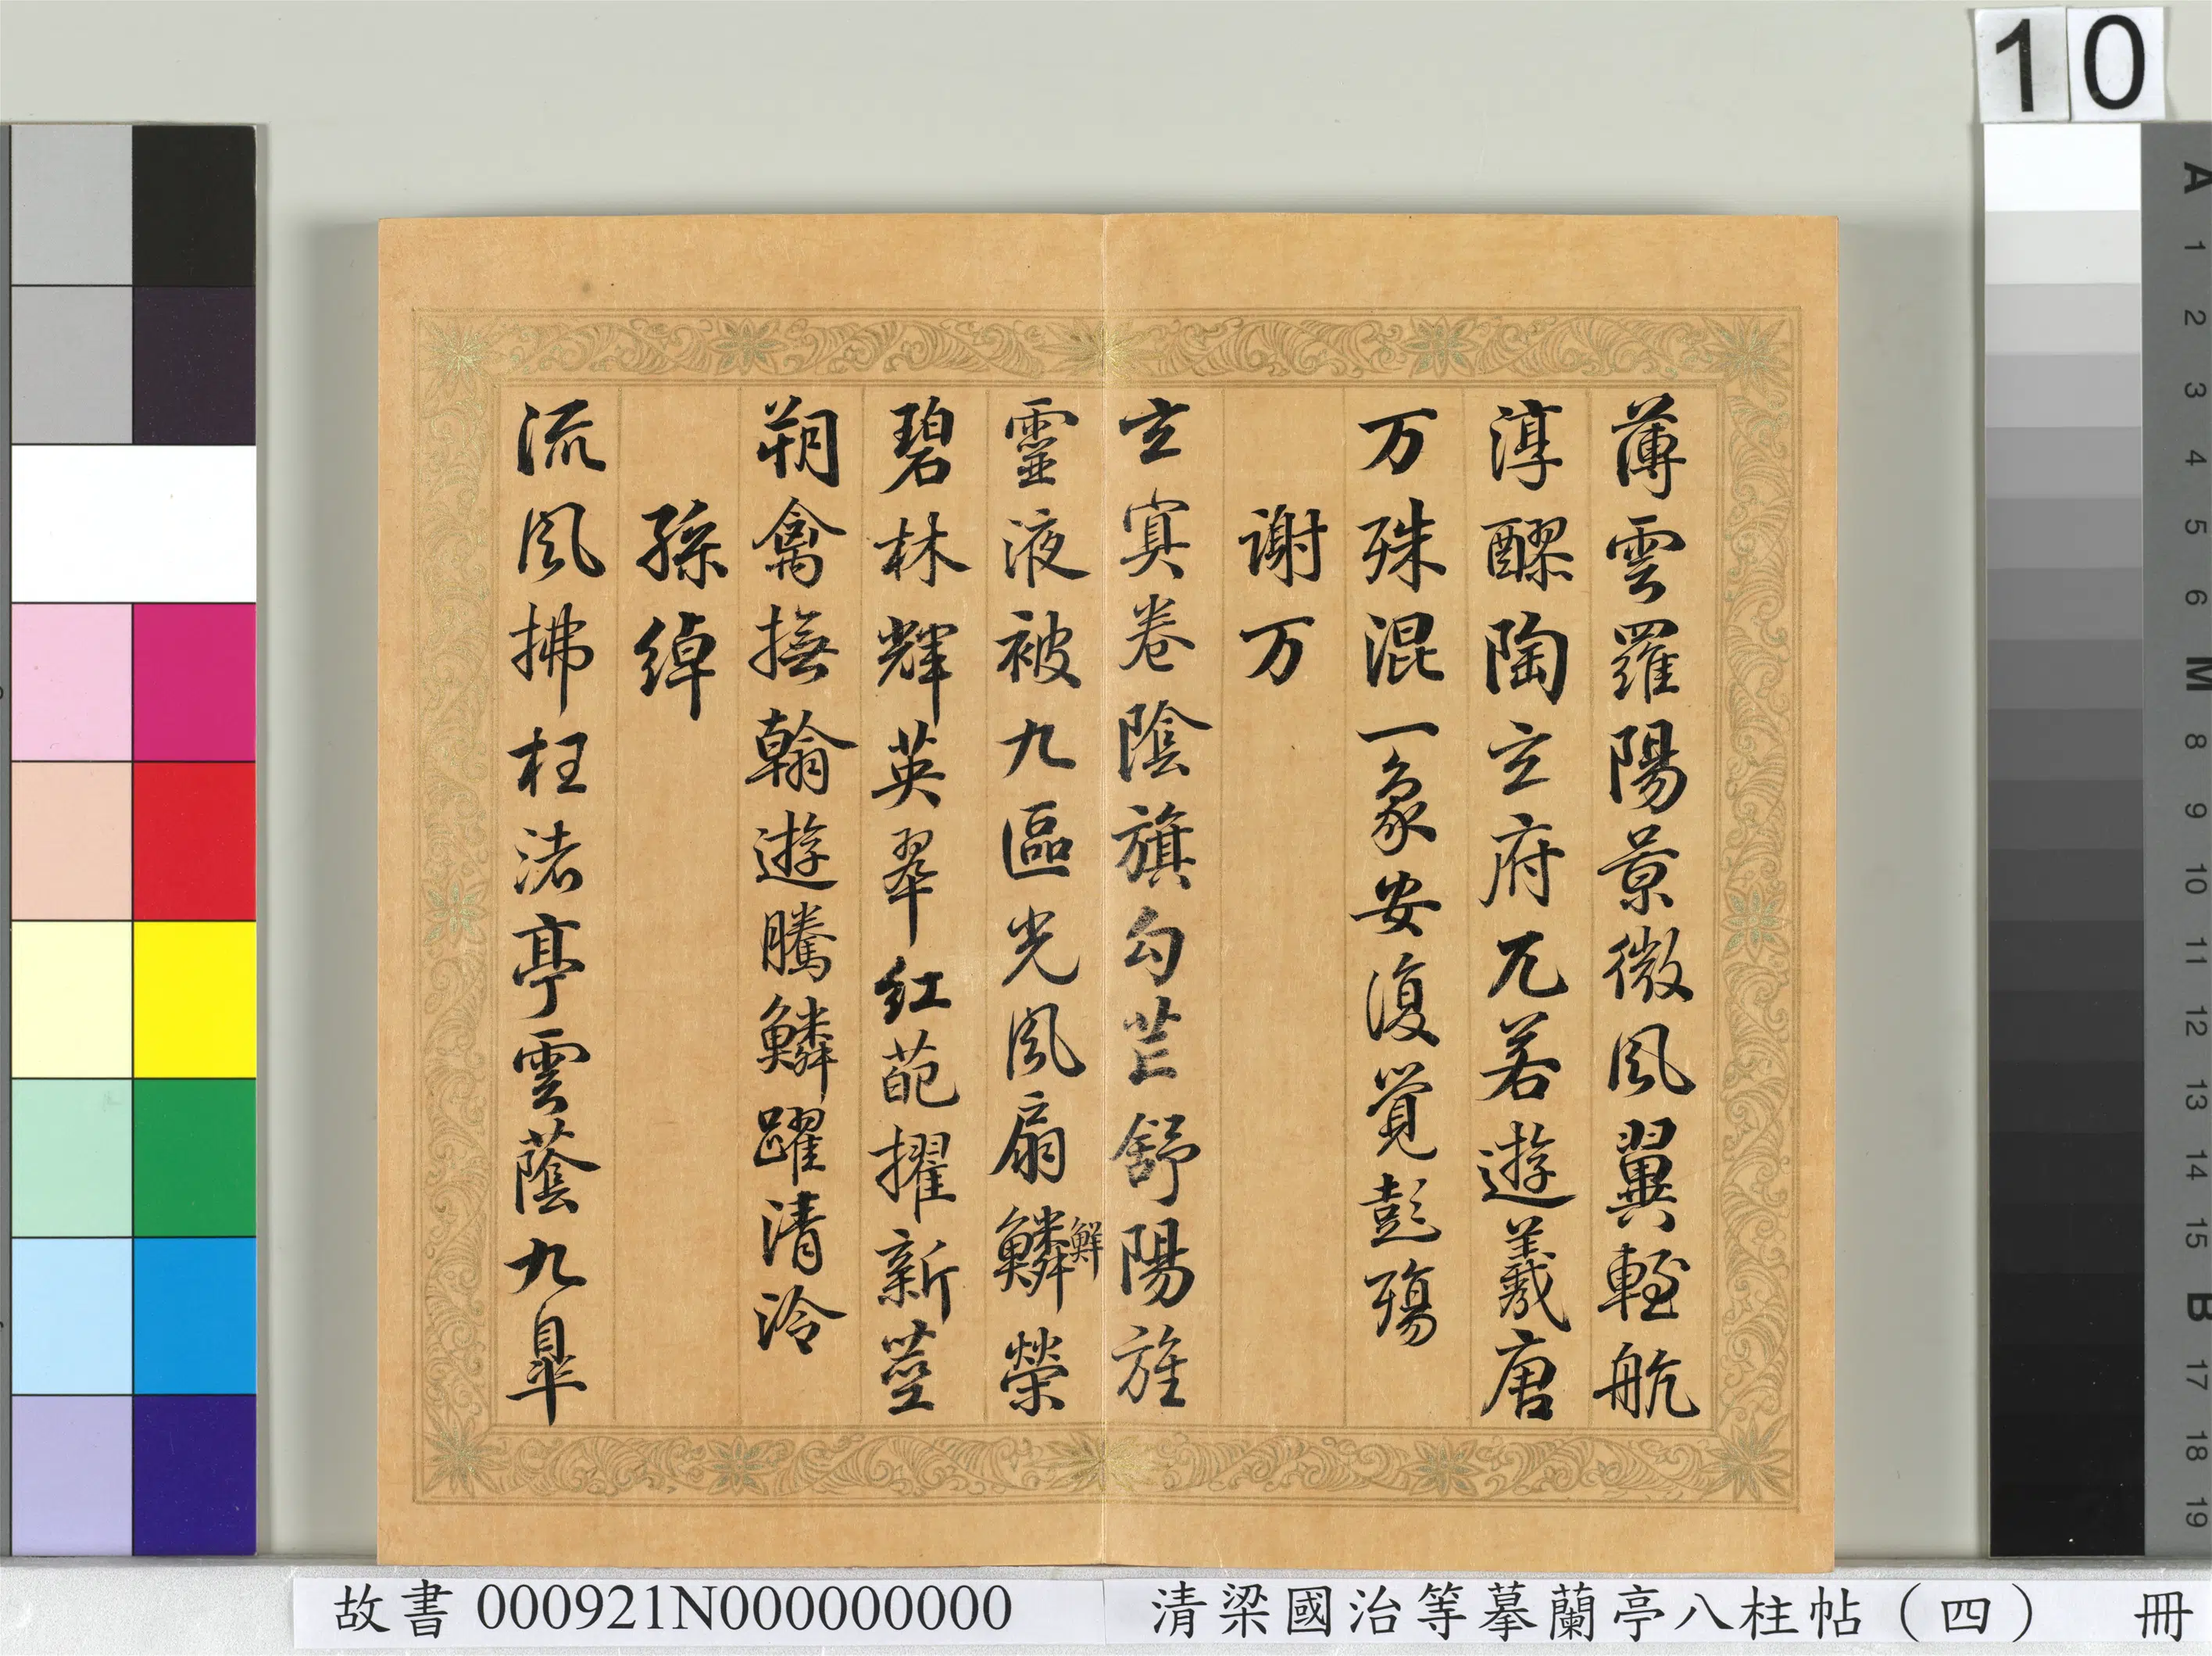 10
薄雲羅陽景微風翼輊航
淳醪陶玄府兀若遊羲唐
万殊混一象安復覺彭殤
謝万
玄冥卷陰旗勾芒舒陽旌
靈液被九區光風扇鱗榮
鮮
碧林輝英翠紅葩擢新莖
朔禽撫翰遊騰鱗躍清泠
孫綽
流風拂枉渚亭雲蔭九皐
A
1
2
3
4
5
6
M
8
9
10
11
12
13
14
15
B
17
18
19
故書 000921N000000000
清梁國治等摹蘭亭八柱帖（四） 冊